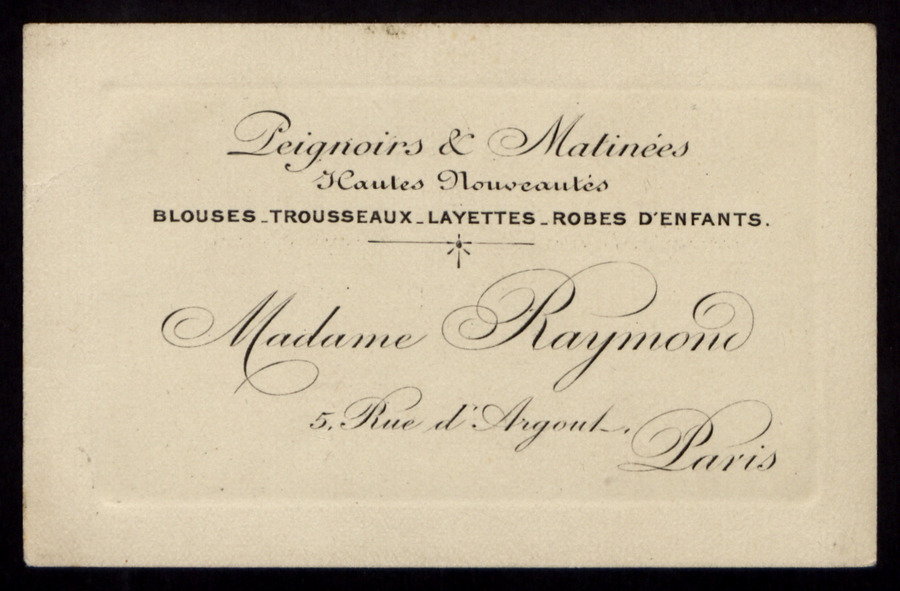 Peignoirs & Matinées
Hautes Nouveautés
BLOUSES_TROUSSEAUX_LAYETTES_ROBES D'ENFANTS.
Madame Raymond
5, Rue d'Argout_.
Paris